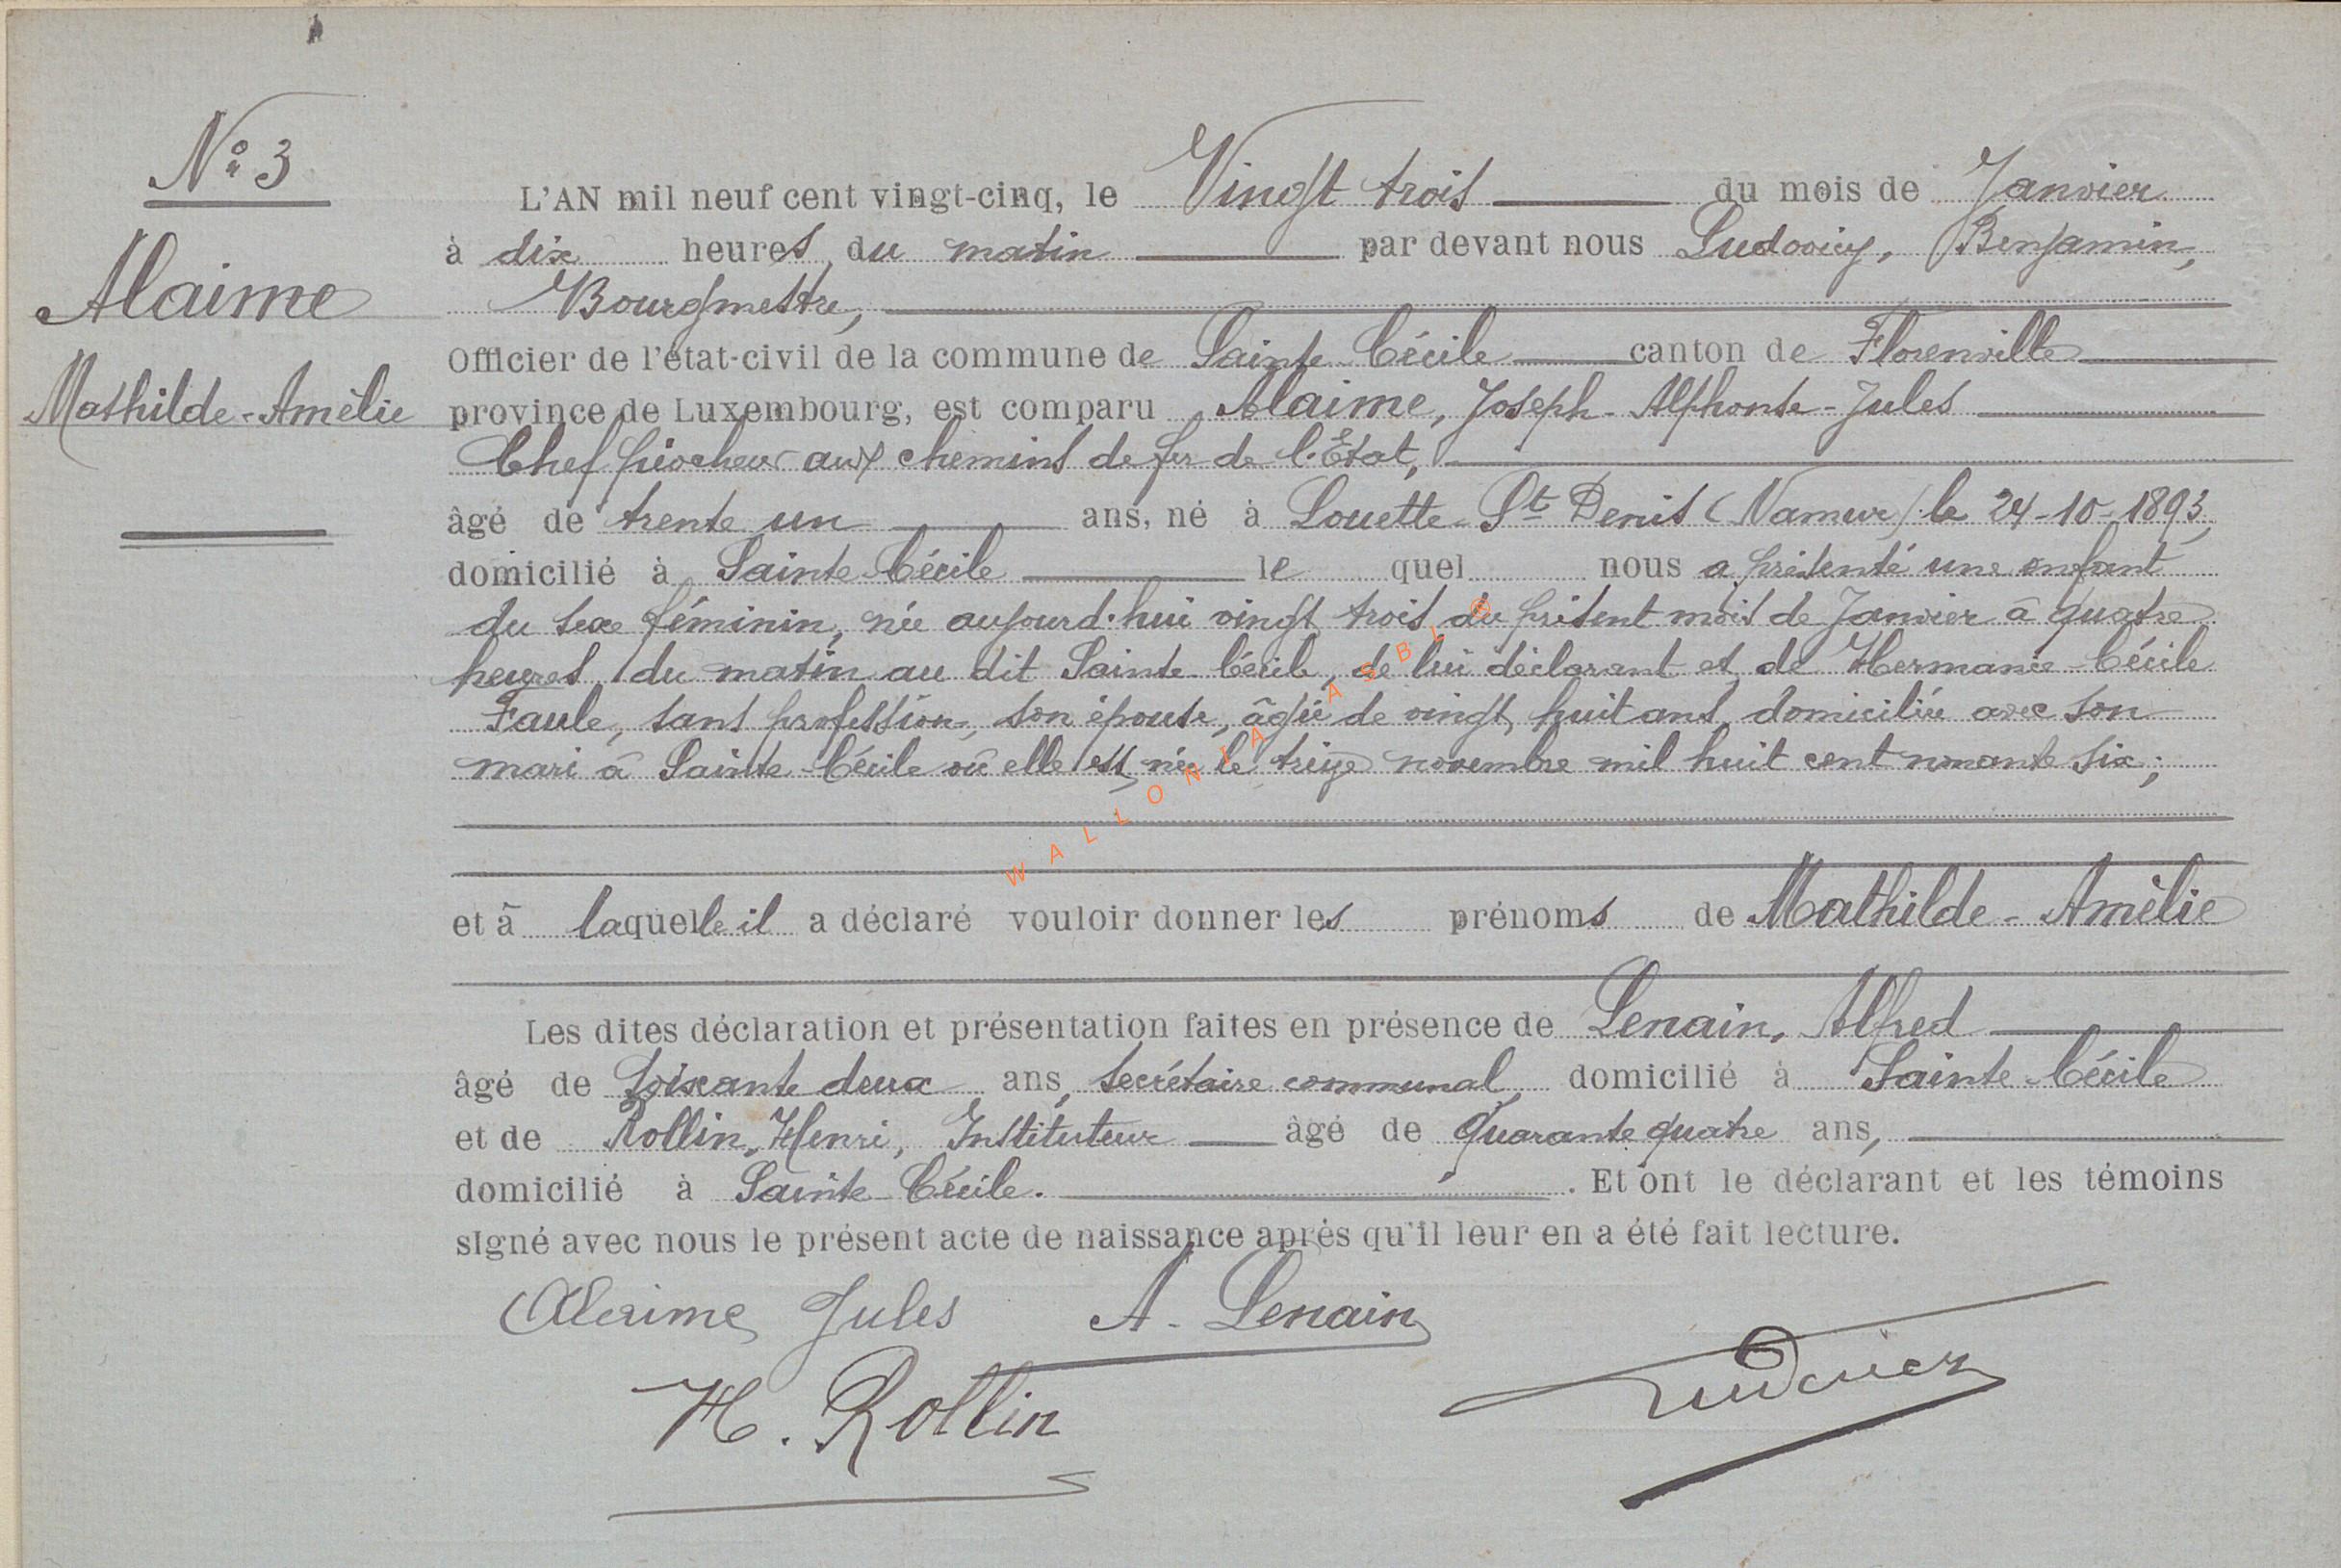 N° 3
Alaime
Mathilde-Amélie
L'AN mil neuf cent vingt-cinq, le Vingt trois du mois de Janvier
à dix heures du matin par devant nous Ludovicy, Benjamin,
Bourgmestre,
Officier de l'état-civil de la commune de Sainte-Cécile canton de Florenville
province de Luxembourg, est comparu Alaime, Joseph-Alphonse-Jules
Chef piocheur aux chemins de fer de l'Etat,
âgé de trente un ans, né à Louette-St Denis (Namur) le 24-10-1893,
domicilié à Sainte-Cécile le quel nous a présenté une enfant
du sexe féminin, née aujourd'hui vingt trois du présent mois de Janvier à quatre
heures du matin au dit Sainte-Cécile, de lui déclarant et de Hermance-Cécile
Faule, sans profession, son épouse, âgée de vingt huit ans, domiciliée avec son
mari à Sainte-Cécile où elle est née le treize novembre mil huit cent nonante six;
et à laquelle il a déclaré vouloir donner les prénoms de Mathilde-Amélie
Les dites déclaration et présentation faites en présence de Lenain, Alfred
âgé de soixante deux ans, secrétaire communal, domicilié à Sainte-Cécile
et de Rollin, Henri, Instituteur âgé de quarante quatre ans,
domicilié à Sainte-Cécile. . Et ont le déclarant et les témoins
signé avec nous le présent acte de naissance après qu'il leur en a été fait lecture.
Alaime Jules A. Lenain
H. Rollin Ludovicy
WALLONIA ASBL ®